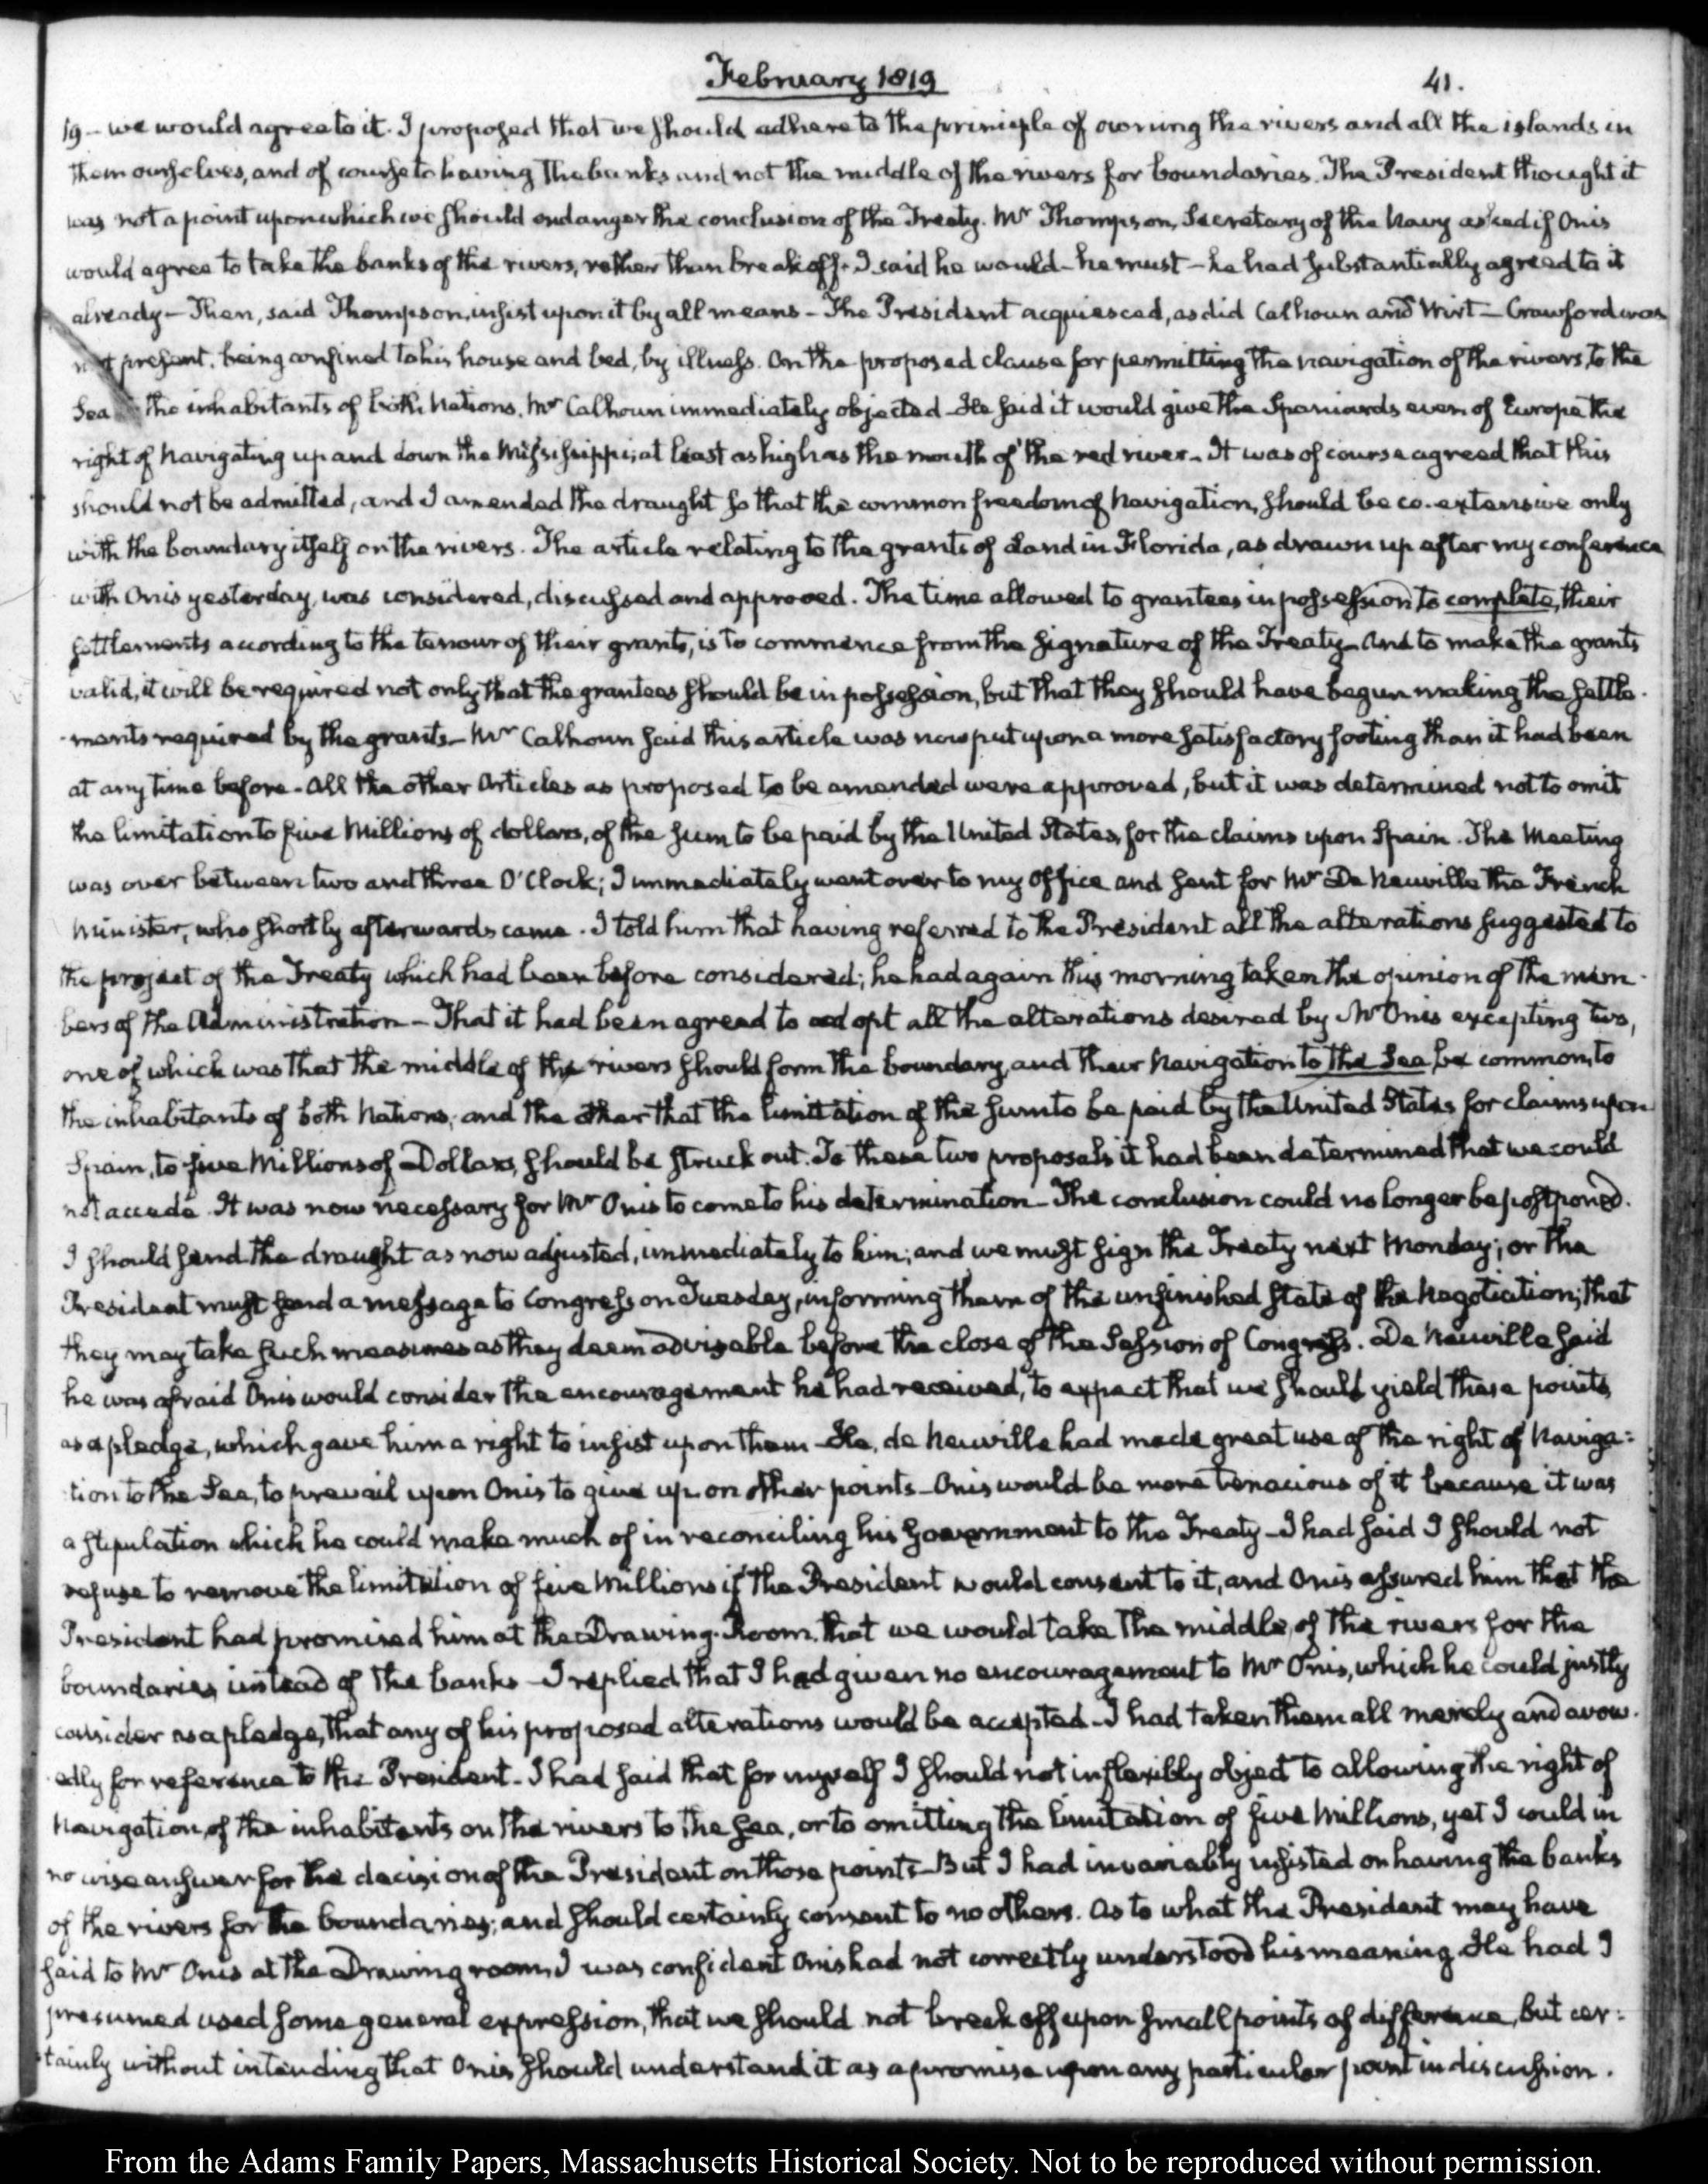 February 1819
41.
19— we would agree to it. I proposed that we should adhere to the principle of owning the rivers and all the islands in
them ourselves, and of course to having the banks and not the middle of the rivers for boundaries. The President thought it
was not a point upon which we should endanger the conclusion of the Treaty. Mr Thompson, Secretary of the Navy asked if Onis
would agree to take the banks of the rivers, rather than break off. I said he would— he must— he had substantially agreed to it
already— Then, said Thompson, insist upon it by all means— The President acquiesced, as did Calhoun and Wirt— Crawford was
not present, being confined to his house and bed, by illness. On the proposed clause for permitting the navigation of the rivers, to the
Sea the inhabitants of both Nations, Mr Calhoun immediately objected— He said it would give the Spaniards even of Europe the
right of Navigating up and down the Mississippi; at least as high as the mouth of the red river— It was of course agreed that this
should not be admitted, and I amended the draught so that the common freedom of Navigation, should be co-extensive only
with the boundary itself on the rivers. The article relating to the grants of Land in Florida, as drawn up after my conference
with Onis yesterday, was considered, discussed and approved. The time allowed to grantees in possession to complete, their
settlements according to the tenour of their grants, is to commence from the signature of the Treaty— And to make the grants
valid, it will be required not only that the grantees should be in possession, but that they should have begun making the settle-
-ments required by the grants— Mr Calhoun said this article was now put upon a more satisfactory footing than it had been
at any time before— All the other Articles as proposed to be amended were approved, but it was determined not to omit
the limitation to five Millions of dollars, of the sum to be paid by the United States, for the claims upon Spain. The Meeting
was over between two and three O'Clock; I immediately went over to my Office and sent for Mr De Neuville the French
Minister, who shortly afterwards came. I told him that having referred to the President all the alterations suggested to
the project of the Treaty which had been before considered; he had again this morning taken the opinion of the mem-
bers of the Administration— That it had been agreed to adopt all the alterations desired by Mr Onis excepting two,
one of which was that the middle of the rivers should form the boundary, and their Navigation to the Sea be common, to
the inhabitants of both Nations; and the other that the limitation of the sum to be paid by the United States for claims upon
Spain, to five Millions of Dollars, should be struck out. To these two proposals it had been determined that we could
not accede. It was now necessary for Mr Onis to come to his determination— The conclusion could no longer be postponed.
I should send the draught as now adjusted, immediately to him; and we must sign the Treaty next Monday; or the
President must send a message to Congress on Tuesday, informing them of the unfinished state of the Negotiation; that
they may take such measures as they deem advisable before the close of the Session of Congress. De Neuville said
he was afraid Onis would consider the encouragement he had received, to expect that we should yield these points,
as a pledge, which gave him a right to insist upon them— He, de Neuville had made great use of the right of Naviga=
tion to the Sea, to prevail upon Onis to give up on other points— Onis would be more tenacious of it because it was
a stipulation which he could make much of in reconciling his Government to the Treaty— I had said I should not
refuse to remove the limitation of five Millions if the President would consent to it, and Onis assured him that the
President had promised him at the Drawing-Room, that we would take the middle, of the rivers for the
boundaries, instead of the banks— I replied that I had given no encouragement to Mr Onis, which he could justly
consider as a pledge, that any of his proposed alterations would be accepted— I had taken them all merely and avow-
edly for reference to the President— I had said that for myself I should not inflexibly object to allowing the right of
Navigation, of the inhabitants on the rivers to the sea, or to omitting the limitation of five Millions, yet I could in
no wise answer for the decision of the President on those points— But I had invariably insisted on having the banks
of the rivers for the boundaries; and should certainly consent to no others. As to what the President may have
said to Mr Onis at the Drawing room, I was confident Onis had not correctly understood his meaning. He had I
presumed used some general expression, that we should not break off upon small points of difference, but cer=
tainly without intending that Onis should understand it as a promise upon any particular point in discussion.
From the Adams Family Papers, Massachusetts Historical Society. Not to be reproduced without permission.